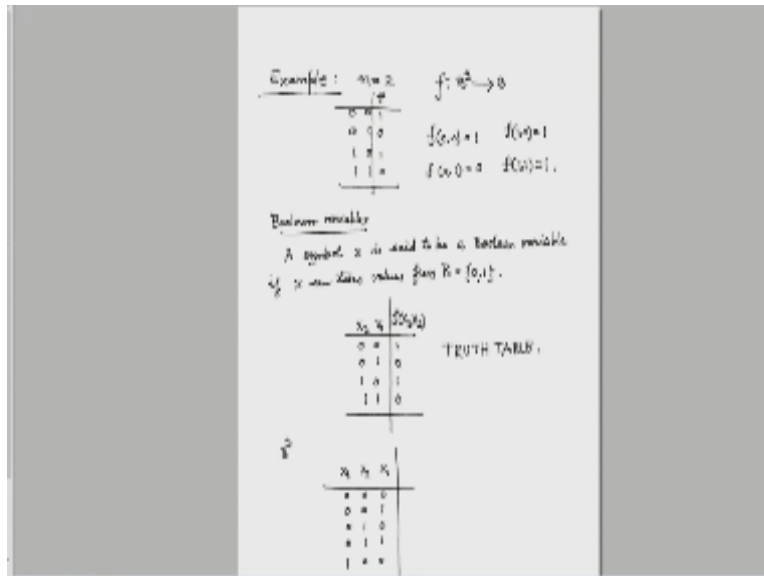 Example : n = 2 f: B² → B
f
0 0 1
0 1 0
1 0 1
1 1 0
f(0,0) = 1 f(1,0) = 1
f(0,1) = 0 f(1,1) = 1.
Boolean variables
A symbol x is said to be a Boolean variable
if x takes values from B = {0,1}.
x₂ x₁
0 0 1
0 1 0
1 0 1
1 1 0
TRUTH TABLE.
0 0 0
0 0 1
0 1 0
0 1 1
1 0 0